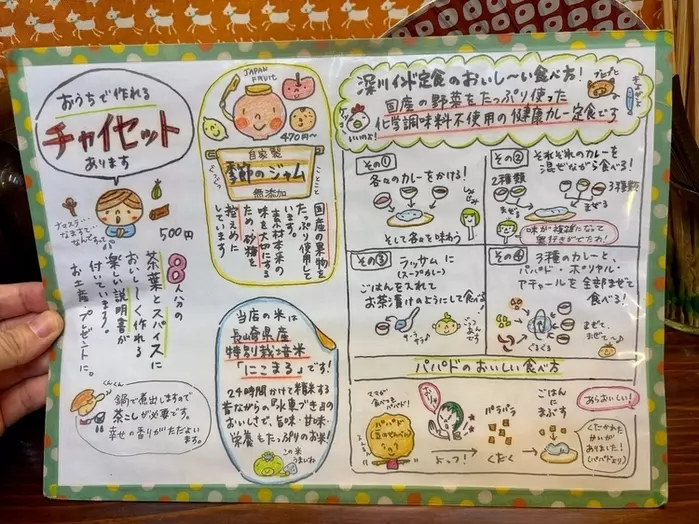 おうちで作れる
チャイセット
あります
ナマステ…
なますて…
500円
8人分の
茶葉とスパイスに
おいし〜く作れる
楽しい説明書が
付いています。
お土産・プレゼントに。
くんくん
鍋で煮出しますので
茶こしが必要です。
幸せの香りがただよい
ます。
JAPAN
FRUIT
470円〜
自家製
季節のジャム
無添加
ことこと
国産の果物を
たっぷり使用して
います。
素材本来の
味を大切にする
ため、砂糖
控えめに
しています
当店の米は
長崎県産
特別栽培米
「にこまる」です!
24時間かけて精米する
昔ながらの『水車づき』の
おいしさで、旨味・甘味・
栄養もたっぷりのお米!
この米
うまいわ
深川インド定食のおいし〜い食べ方!
国産の野菜をたっぷり使った
化学調味料不使用の健康カレー定食です
その①
各々のカレーをかける!
そして各々を味わう
その②
それぞれのカレーを
混ぜながら食べる!
2種類
3種類
まぜる
まぜる
味が複雑になって
奥行きがでちゃう!
その③
ラッサムに
(スープカレー)
ごはんを入れて
お茶漬けのようにして食べる
その④
3種のカレーと、
パパド・ポリヤル・
アチャールを全部まぜて
食べる!
ぐるぐる
まぜて、
まぜて、
パパドのおいしい食べ方
ママが
食べてもパパド!
パパド
よっ!
パラパラ
くだく
ごはんに
まぶす
あらおいしい!
くだかれた
かいが
ありました!
(パパドより)